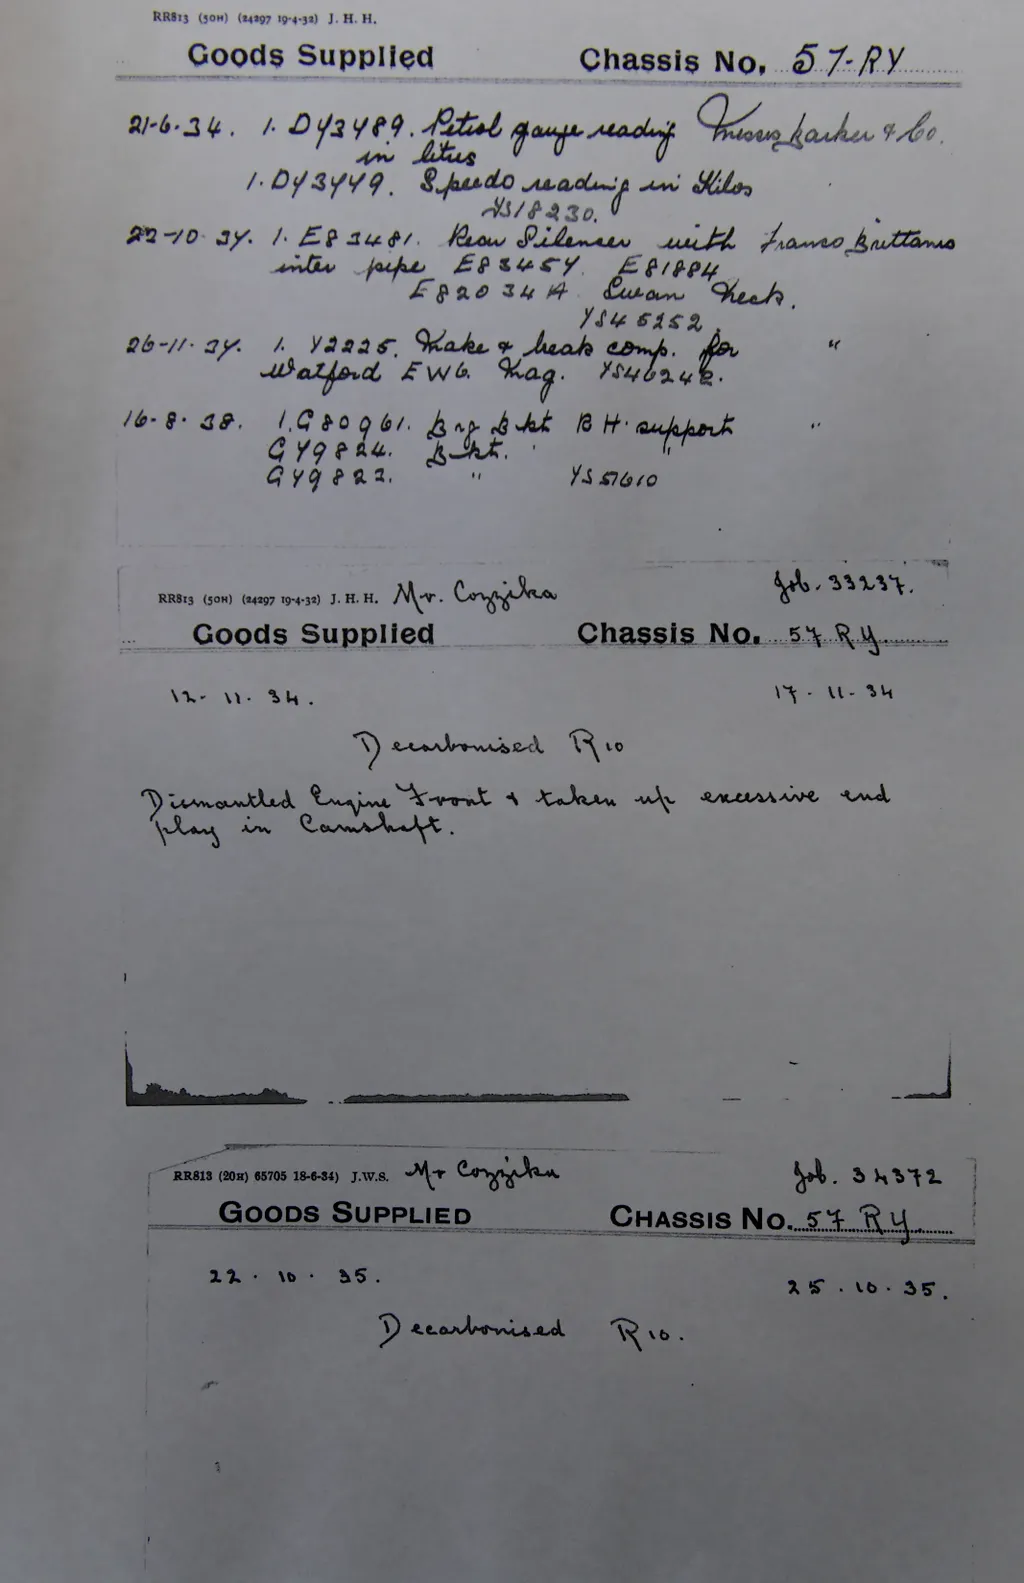 RR813 (50H) (24297 19-4-32) J. H. H.
Goods Supplied Chassis No. 57-RY
21-6-34. 1. DY3489. Petrol gauge reading Messrs Barker & Co.
in litres
1. DY3449. Speedo reading in Kilos
YS18230.
22-10-34. 1. E83481. Rear Silencer with Franco Brittanic
inter pipe E83454. E81884
E82034A Swan Neck.
YS45252.
26-11-34. 1. Y2225. Make & break comp. for "
Watford EW6. Mag. YS46242.
16-8-38. 1. G80961. Brg Bkt BH. support "
G49824. Bkt. "
G49822. " YS57610
RR813 (50H) (24297 19-4-32) J. H. H. Mr. Cozzika Job. 33237.
Goods Supplied Chassis No. 57 RY
12-11-34. 17-11-34
Decarbonised R10
Dismantled Engine Front & taken up excessive end
play in Camshaft.
RR813 (20H) 65705 18-6-34) J.W.S. Mr Cozzika Job. 34372
GOODS SUPPLIED CHASSIS NO. 57 RY
22.10.35. 25.10.35.
Decarbonised R10.